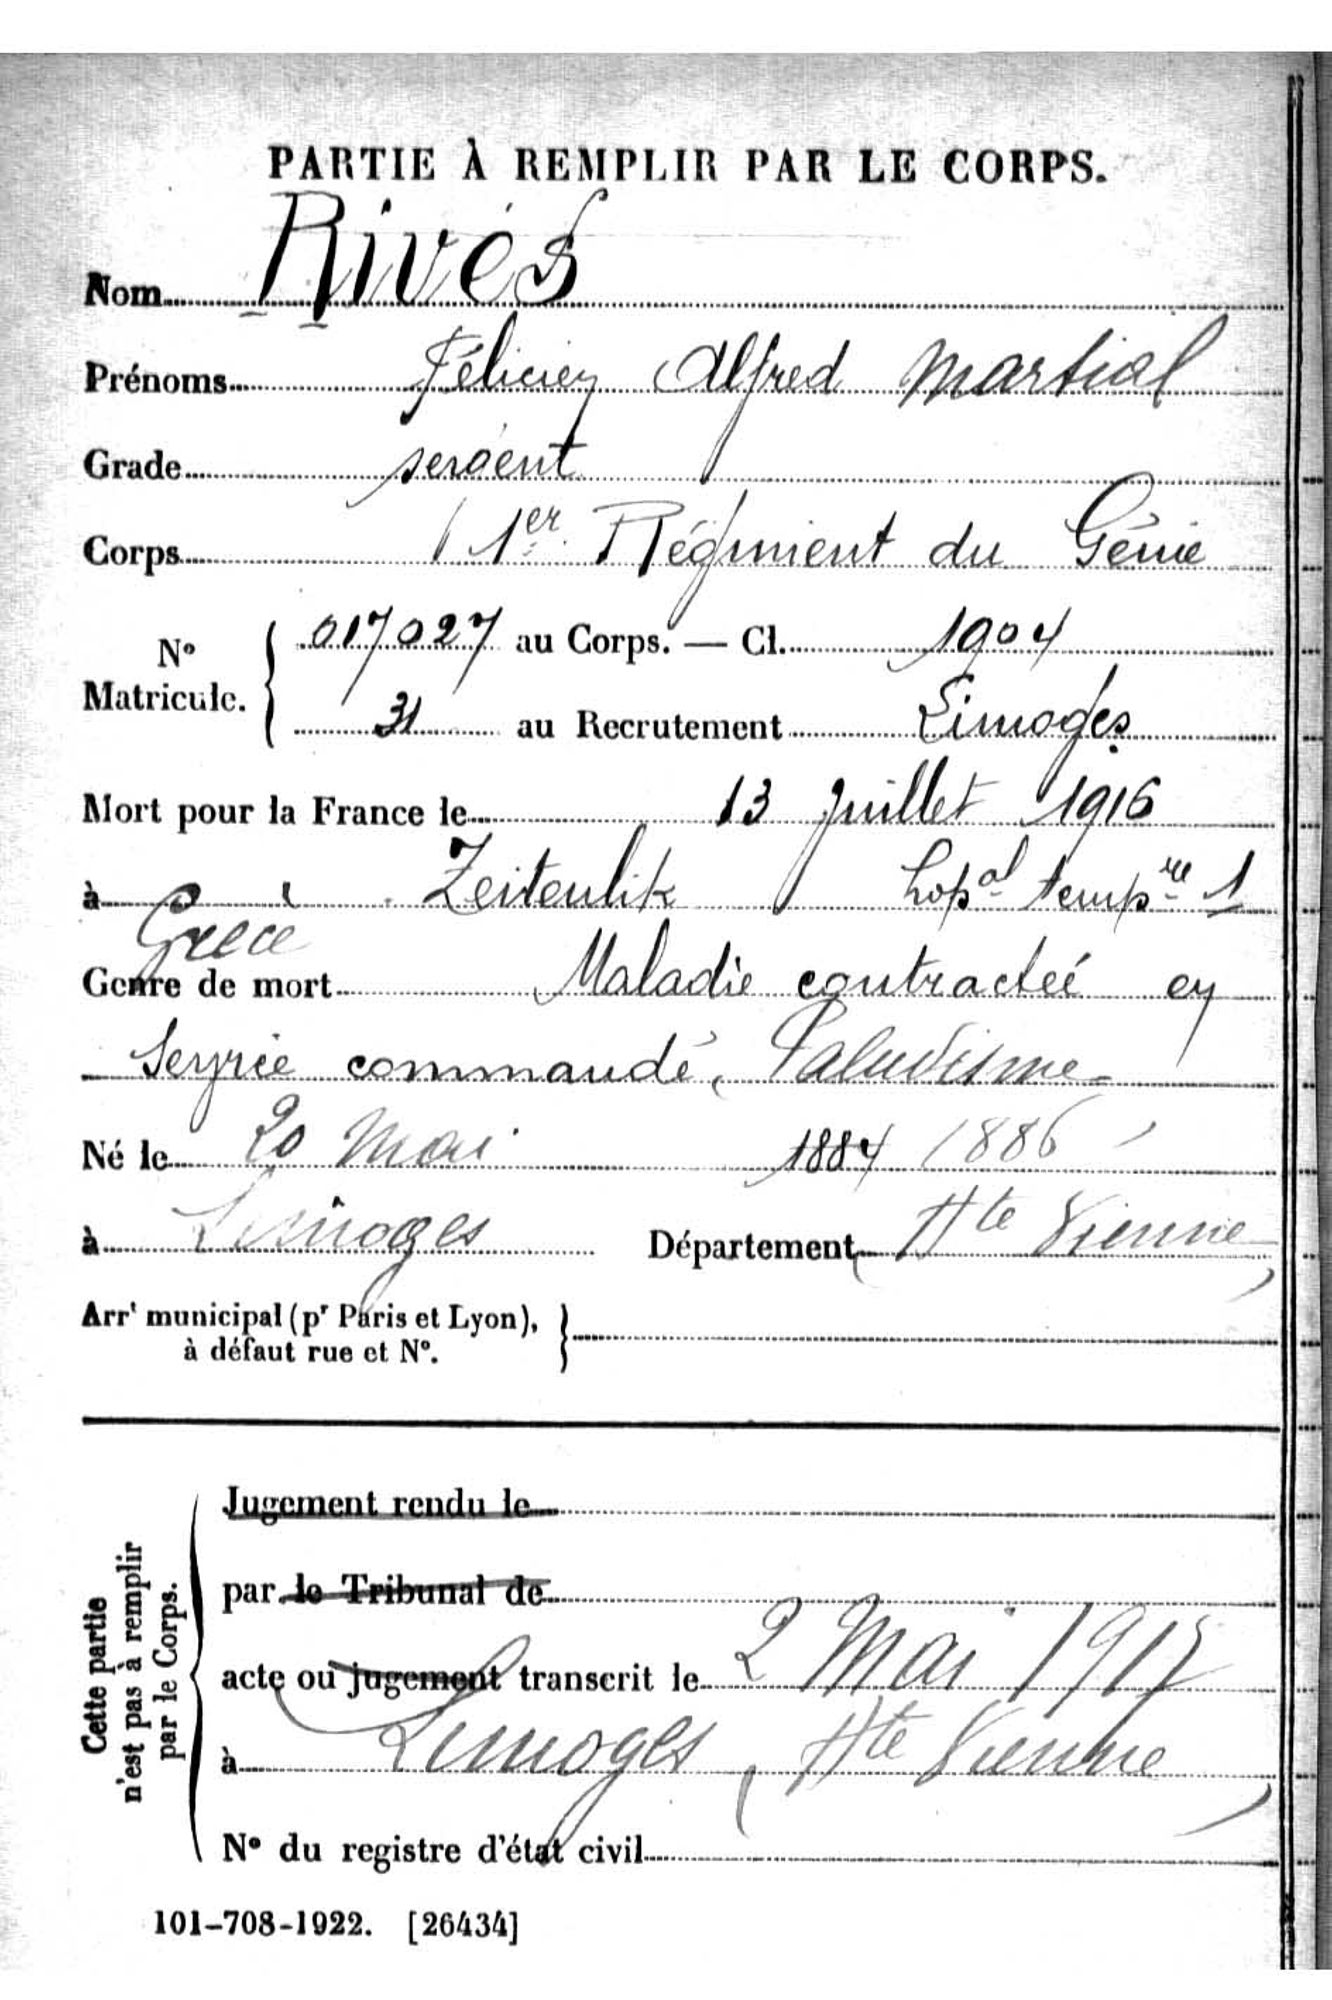 PARTIE À REMPLIR PAR LE CORPS.
Nom Rivés
Prénoms Félicien Alfred Martial
Grade sergent
Corps 1er Régiment du Génie
N° Matricule. 017027 au Corps. — Cl. 1904
31 au Recrutement Limoges
Mort pour la France le 13 Juillet 1916
à Zeitenlik hopal tempre 1
Grèce
Genre de mort Maladie contractée en
Service commandé, Paludisme
Né le 20 Mai 1884 1886
à Limoges Département Hte Vienne
Arrt municipal (pr Paris et Lyon),
à défaut rue et N°.
Cette partie
n'est pas à remplir
par le Corps.
Jugement rendu le
par le Tribunal de
acte ou jugement transcrit le 2 Mai 1917
à Limoges (Hte Vienne)
N° du registre d'état civil
101-708-1922. [26434]